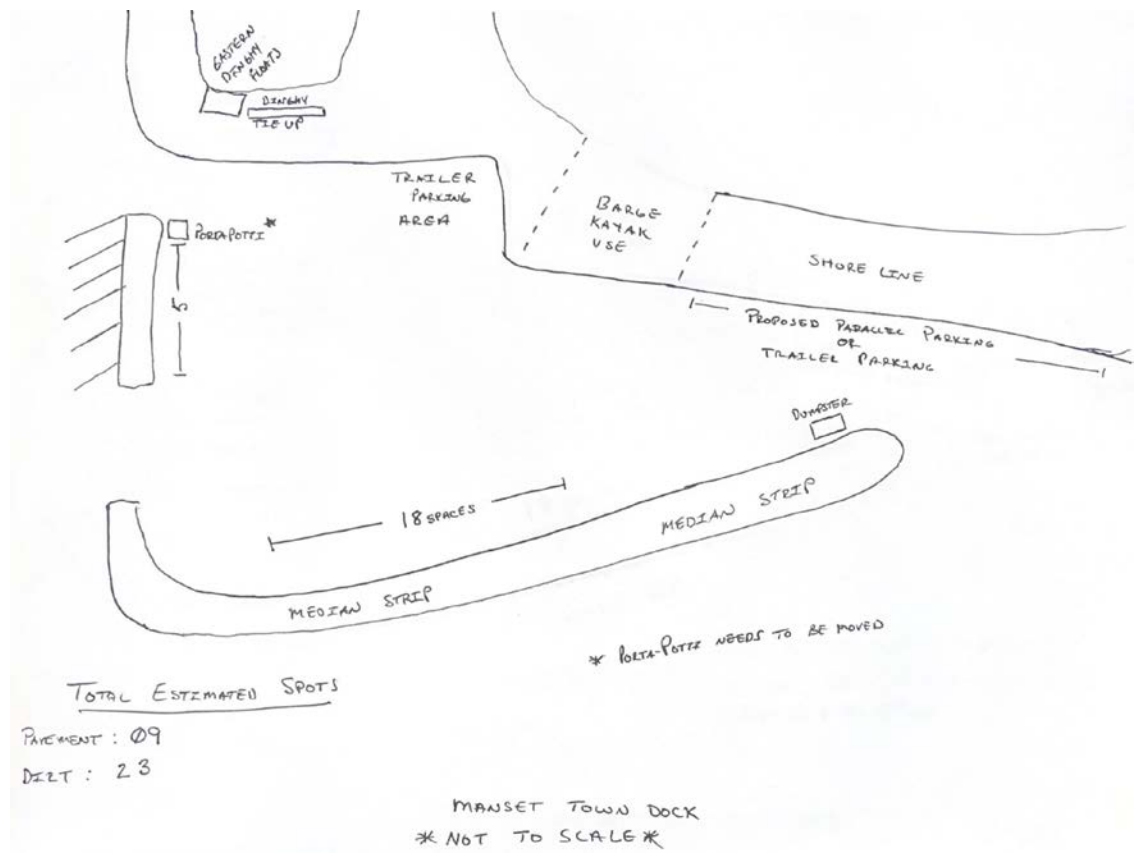 EASTERN
DINGHY
FLOATS
DINGHY
TIE UP
TRAILER
PARKING
AREA
BARGE
KAYAK
USE
SHORE LINE
PORTAPOTTI *
5
PROPOSED PARALLEL PARKING
OR
TRAILER PARKING
DUMPSTER
18 SPACES
MEDIAN STRIP
MEDIAN STRIP
* PORTA-POTTI NEEDS TO BE MOVED
TOTAL ESTIMATED SPOTS
PAVEMENT : 09
DIRT : 23
MANSET TOWN DOCK
* NOT TO SCALE *